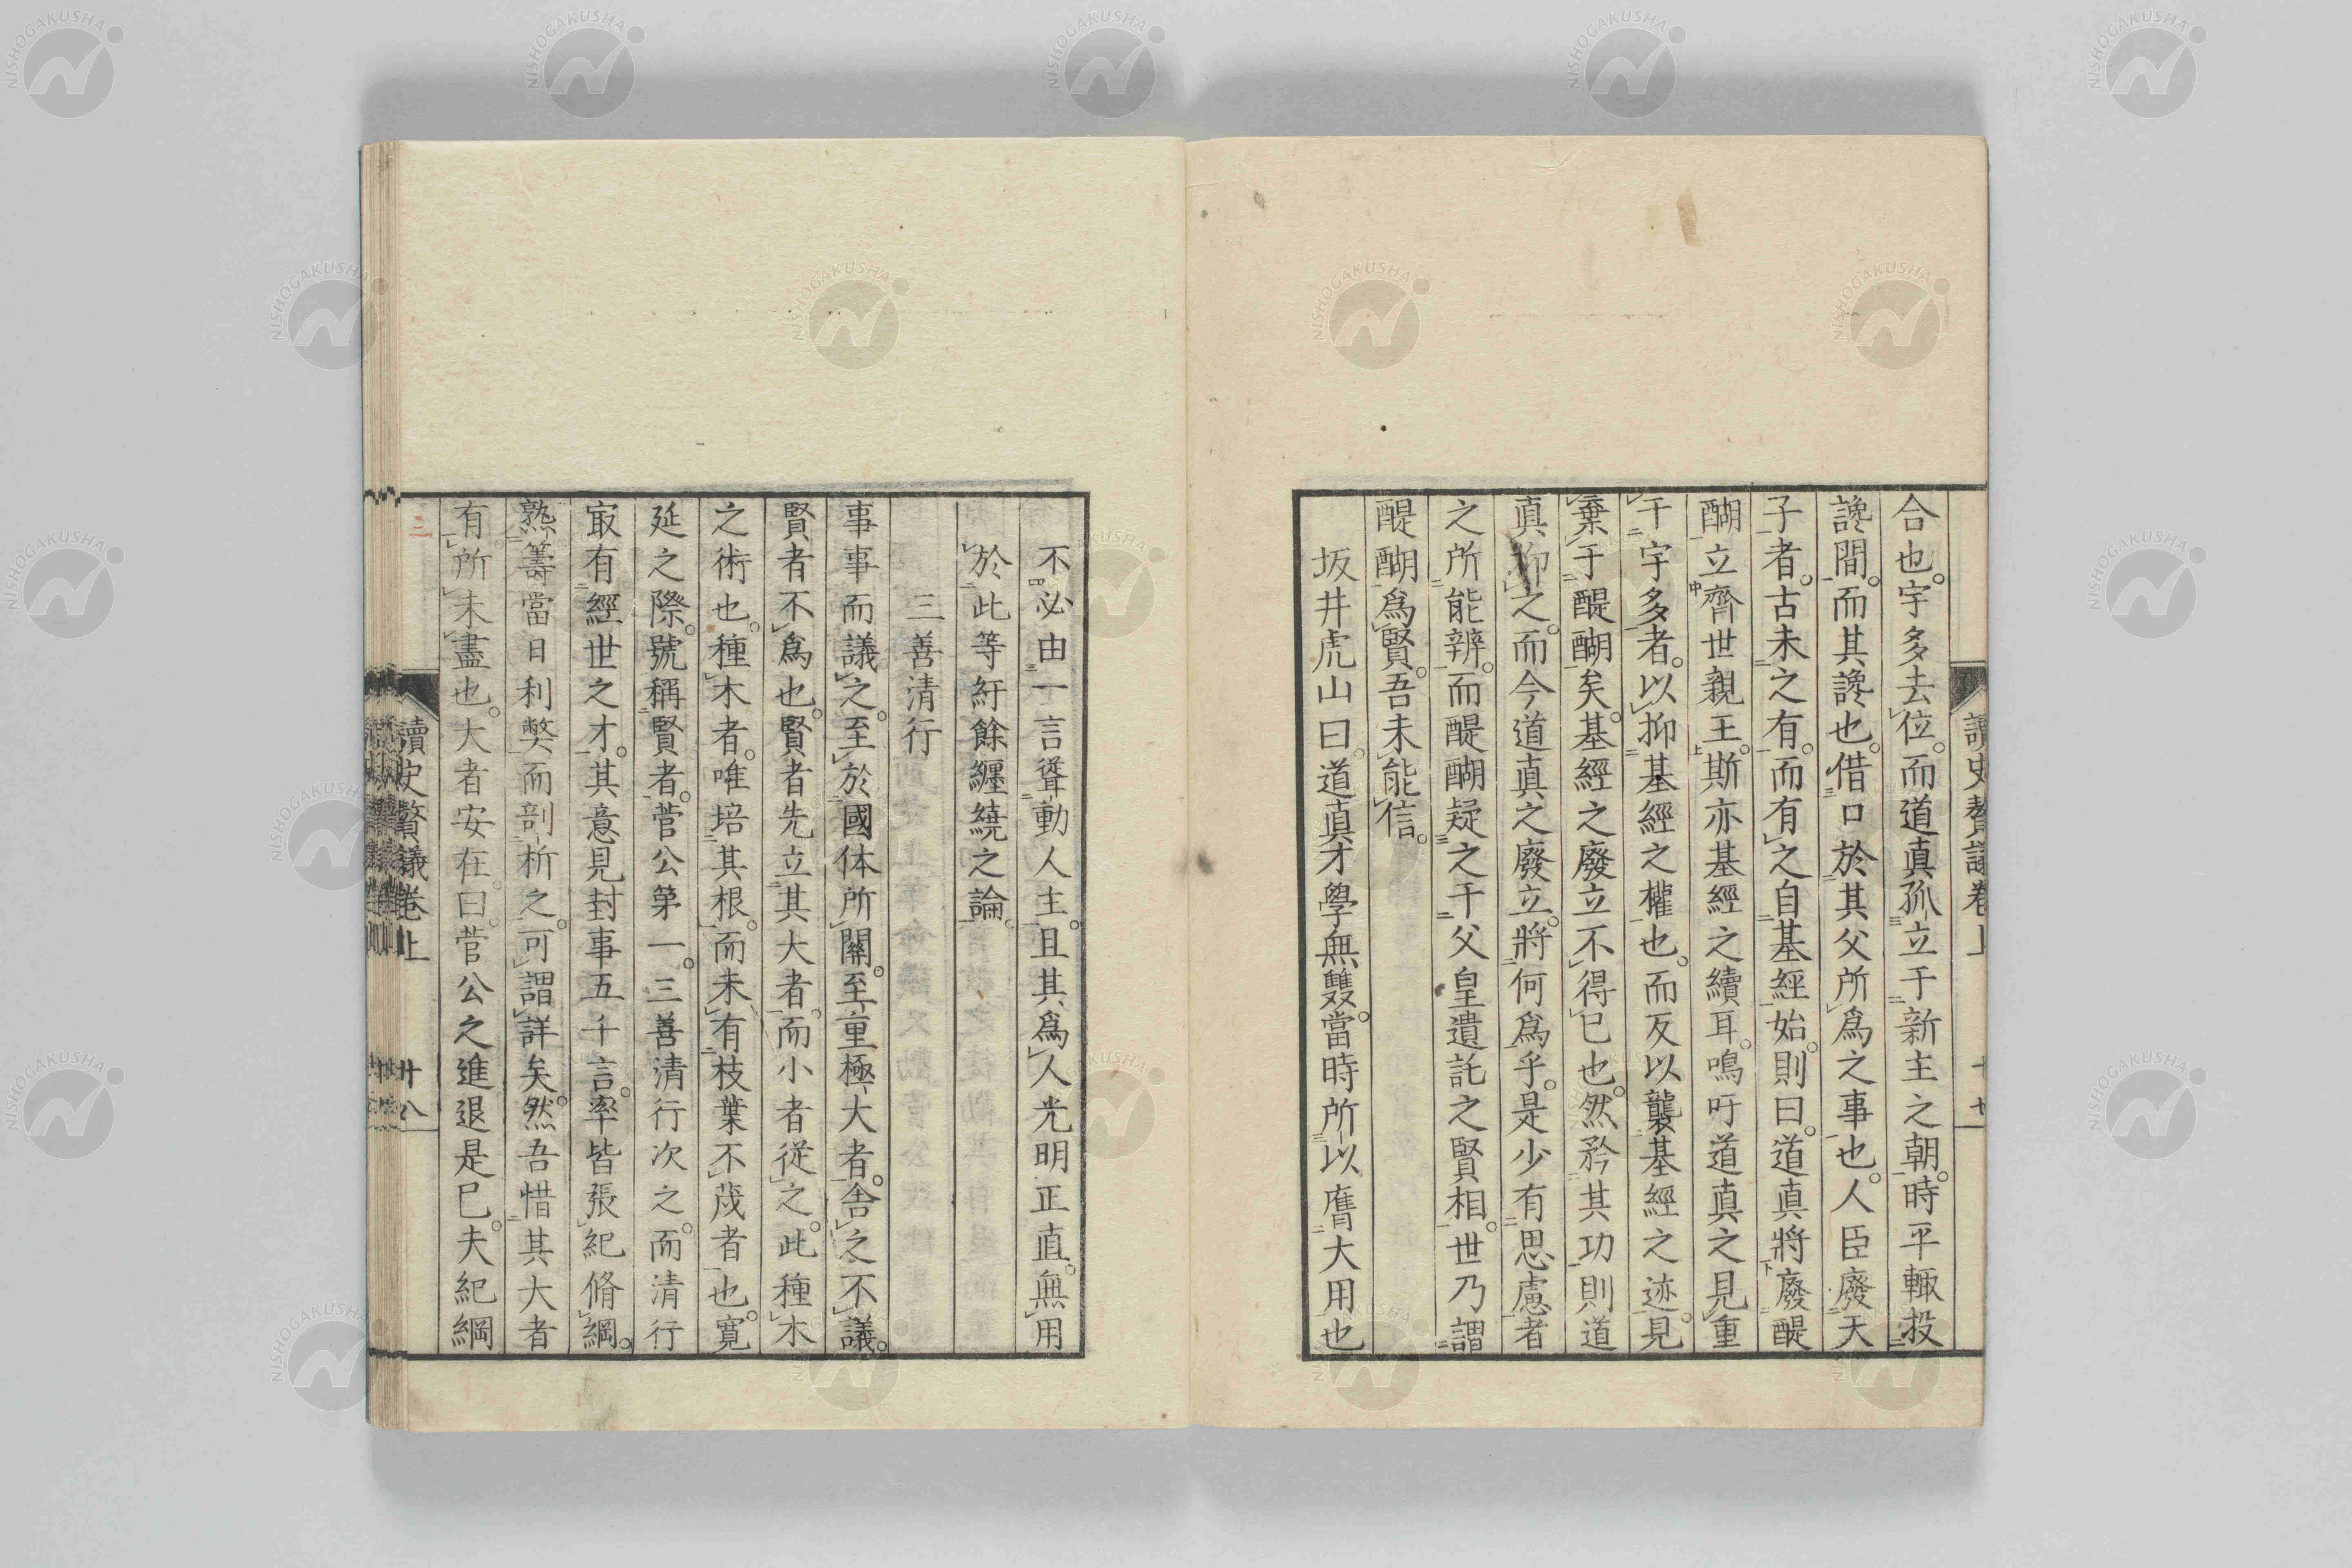 合也。宇多去位。而道真孤立于新主之朝。時平輙投
讒間。而其讒也。借口於其父所爲之事也。人臣廢天
子者。古未之有。而有之自基經始。則曰。道真將廢醍
醐立齊世親王。斯亦基經之續耳。鳴吁道真之見重
于宇多者。以抑基經之權也。而反以襲基經之迹。見
棄于醍醐矣。基經之廢立不得已也。然矜其功則道
真抑之。而今道真之廢立。將何爲乎。是少有思慮者
之所能辨。而醍醐疑之于父皇遺託之賢相。世乃謂
醍醐爲賢。吾未能信。
坂井虎山曰。道真才學無雙。當時所以膺大用也
讀史贅議卷上
十七
不必由一言聳動人主。且其爲人光明正直。無用
於此等紆餘纏繞之論。
三善清行
事事而議之。至於國体所關。至重極大者。舍之不議。
賢者不爲也。賢者先立其大者。而小者從之。此種木
之術也。種木者。唯培其根。而未有枝葉不茂者也。寬
延之際。號稱賢者。菅公第一。三善清行次之。而清行
㝡有經世之才。其意見封事五千言。率皆張紀脩綱。
熟籌當日利弊。而剖析之。可謂詳矣。然吾惜其大者
有所未盡也。大者安在。曰。菅公之進退是已。夫紀綱
讀史贅議卷上
廿八
NISHOGAKUSHA